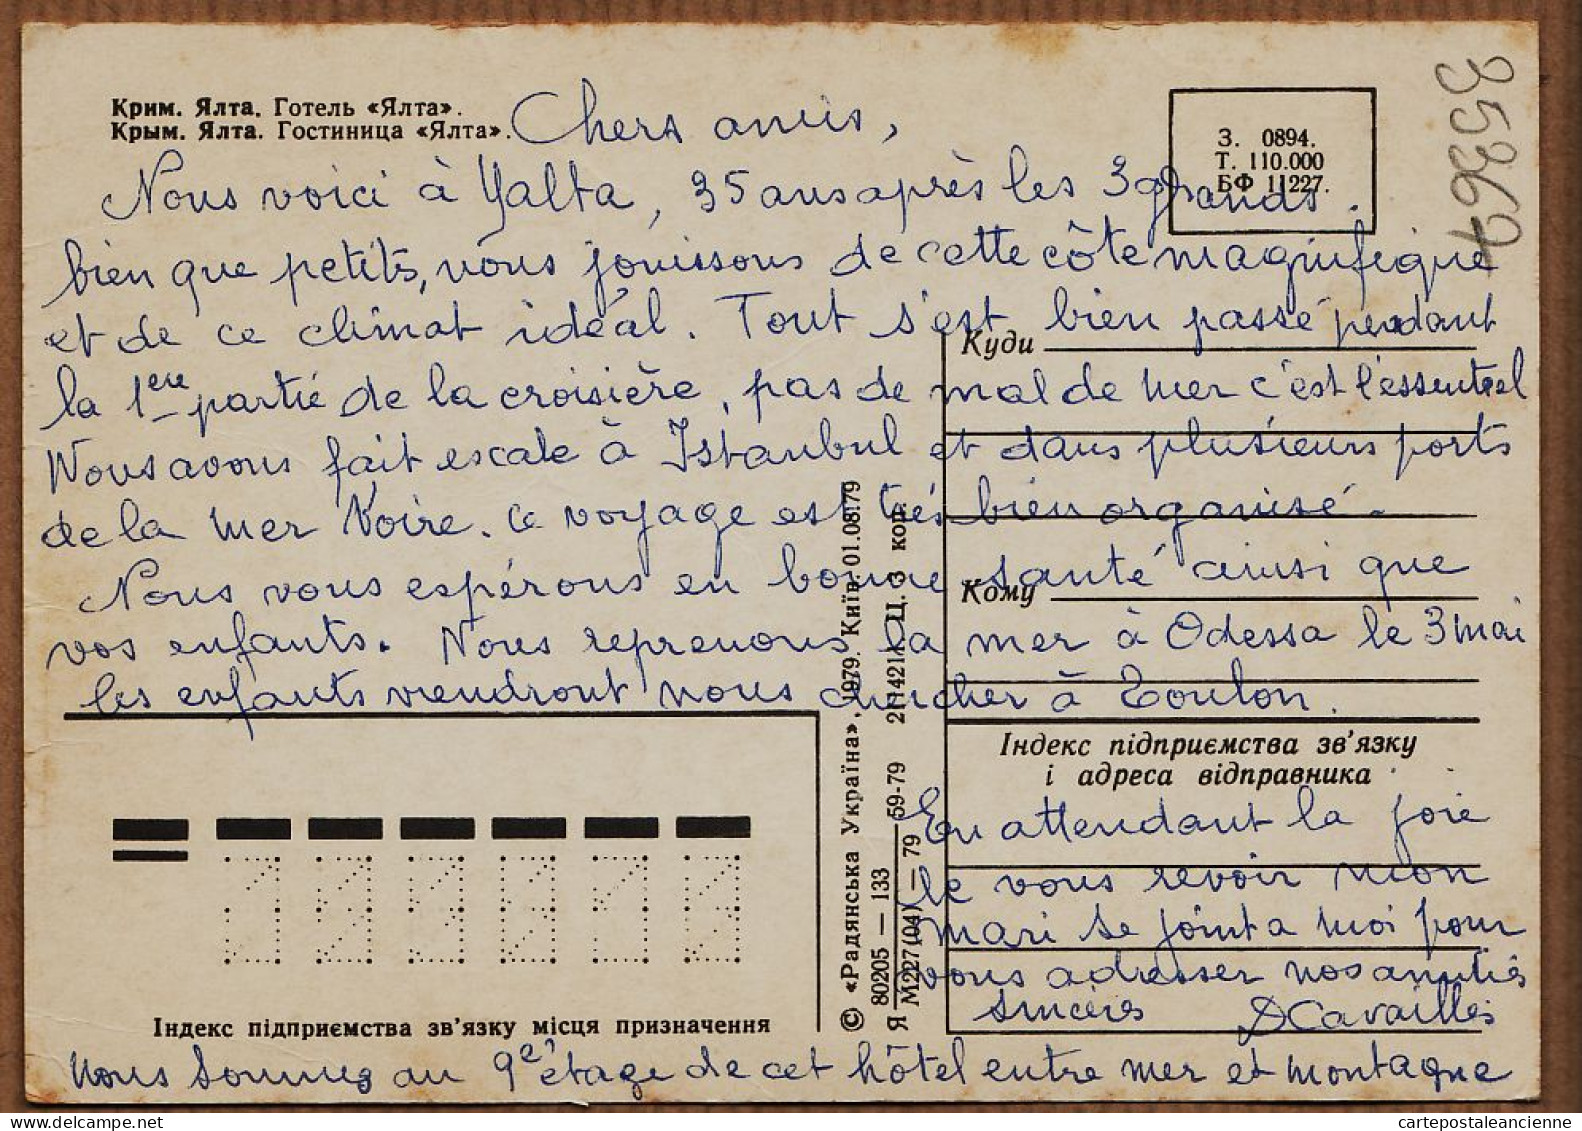 Крим. Ялта. Готель «Ялта».
Крым. Ялта. Гостиница «Ялта».
Chers amis,
З. 0894.
Т. 110.000
БФ 11227.
35367
Nous voici à Yalta, 35 ans après les 3 grands.
bien que petits, nous jouissons de cette côte magnifique
et de ce climat idéal. Tout s'est bien passé pendant
Куди
la 1ere partie de la croisière, pas de mal de mer c'est l'essentiel
Nous avons fait escale à Istanbul et dans plusieurs ports
de la mer Noire. Ce voyage est très bien organisé.
Nous vous espérons en bonne santé ainsi que
Кому
vos enfants. Nous reprenons la mer à Odessa le 3 mai
les enfants viendront nous chercher à Toulon.
Індекс підприємства зв'язку
і адреса відправника
En attendant la joie
de vous revoir mon
mari se joint a moi pour
vous adresser nos amitiés
sincères DCavaillès
© «Радянська Україна», 1979. Київ. 01.08.79
Я 80205 — 133 / М227(04) — 79 59-79 211421К. Ц. 3 коп.
Індекс підприємства зв'язку місця призначення
Nous sommes au 9e étage de cet hôtel entre mer et montagne
cartepostaleancienne.com